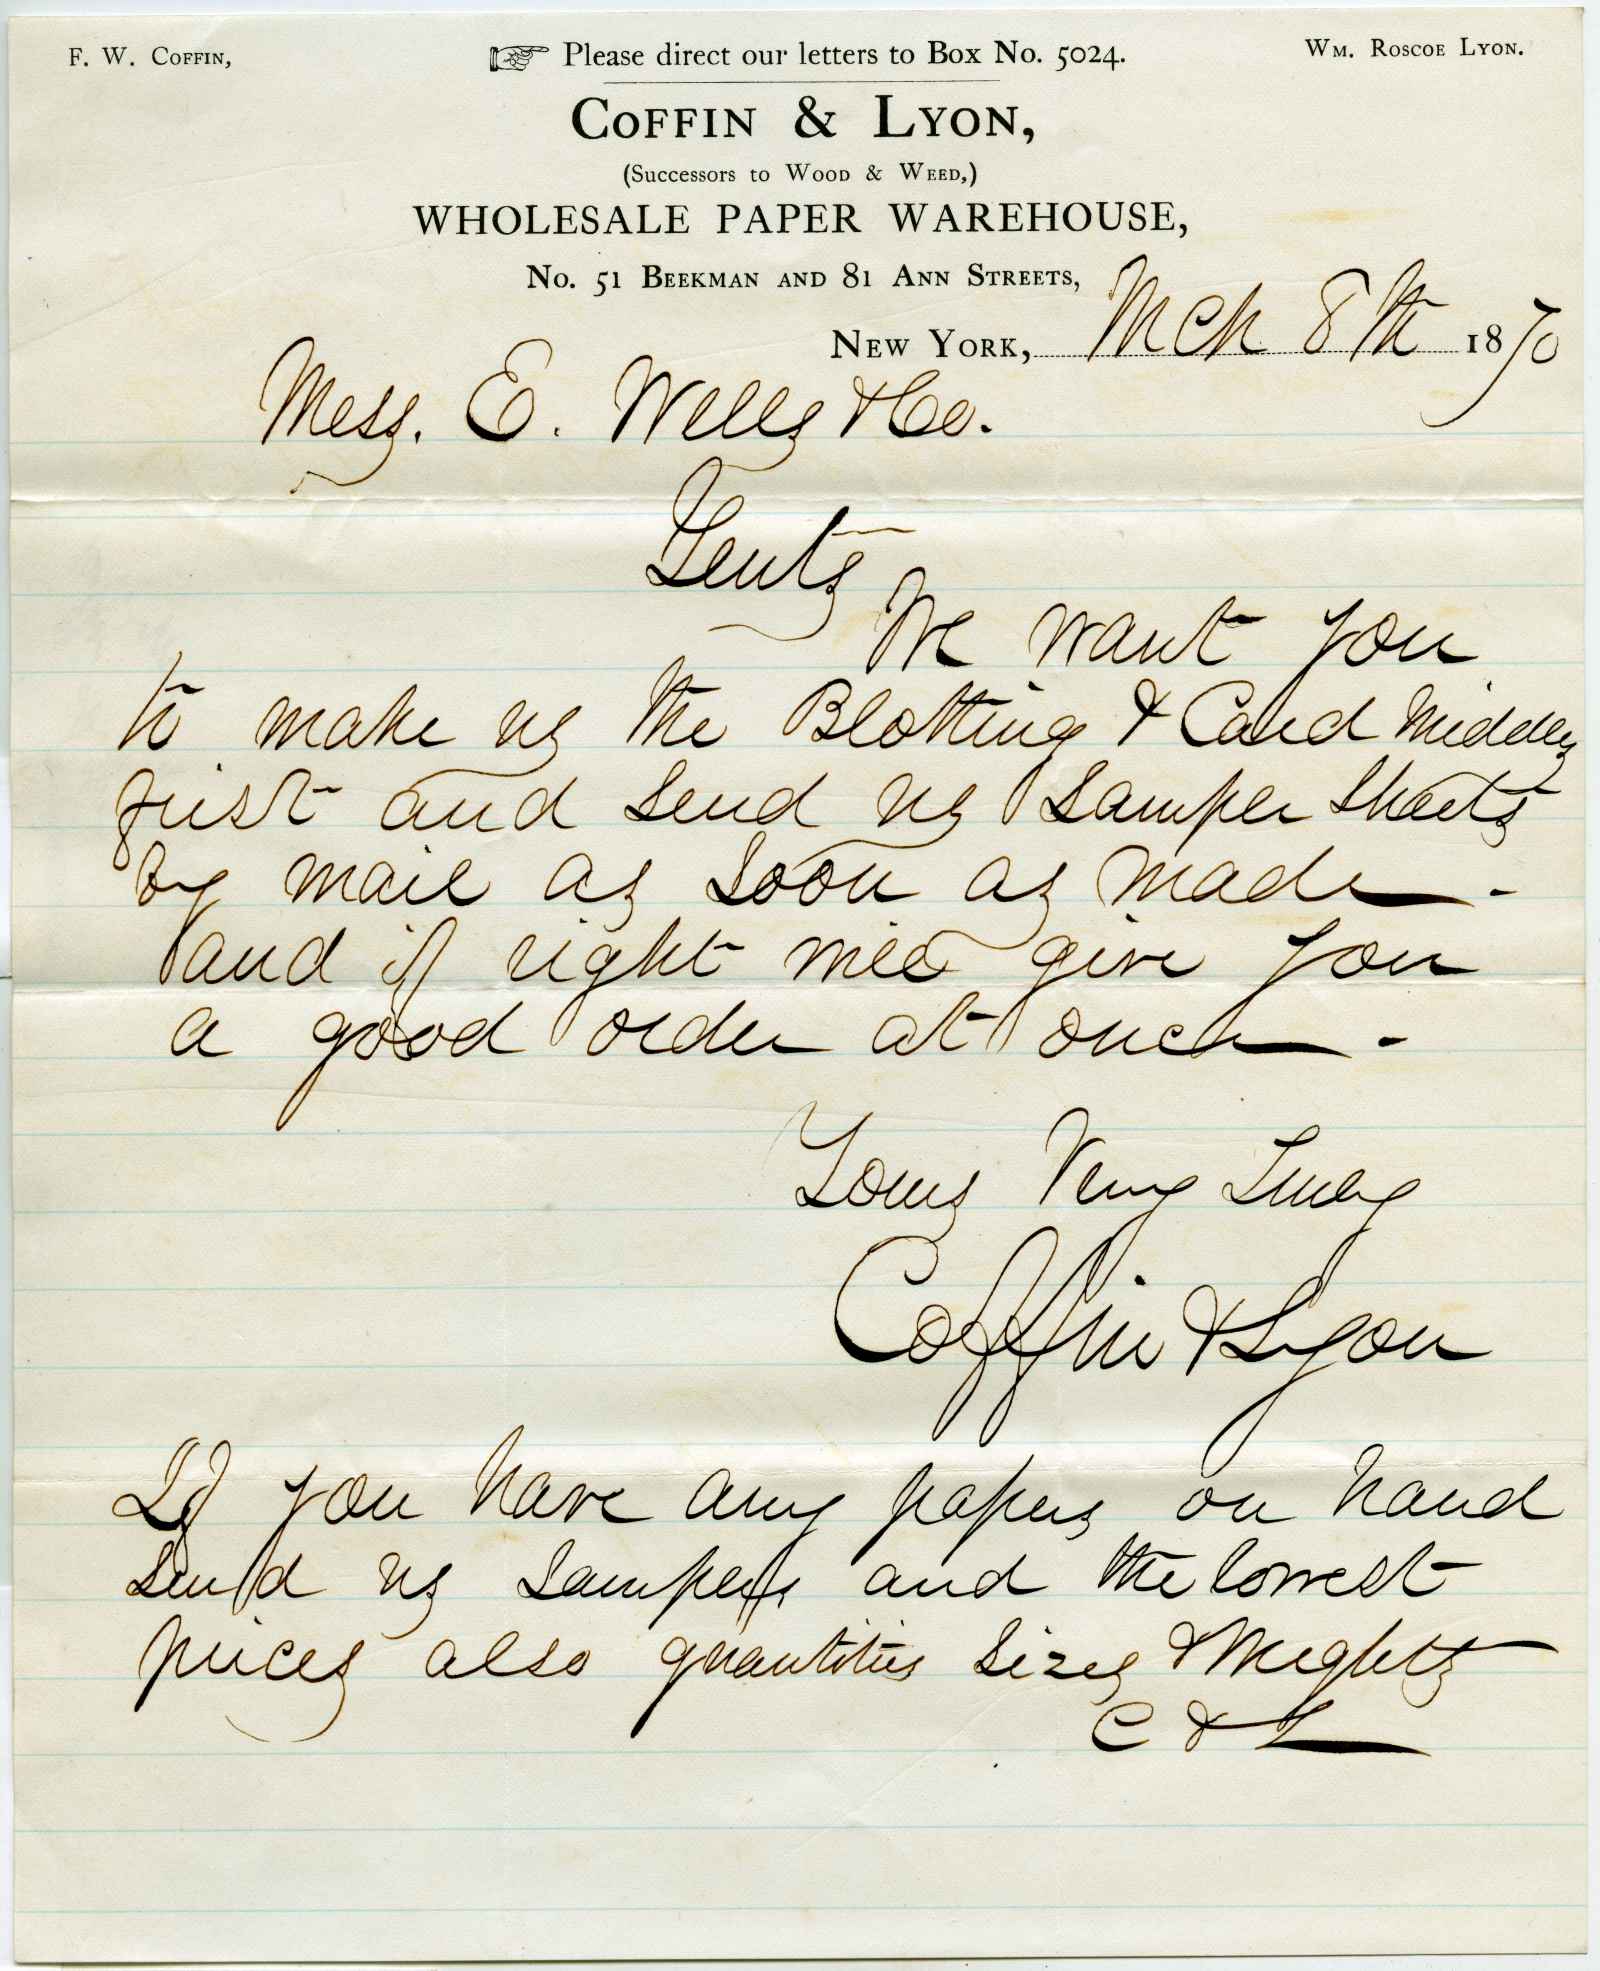 F. W. Coffin,
☞ Please direct our letters to Box No. 5024.
Wm. Roscoe Lyon.
Coffin & Lyon,
(Successors to Wood & Weed,)
WHOLESALE PAPER WAREHOUSE,
No. 51 Beekman and 81 Ann Streets,
New York, Mch 8th 1870
Mess. E. Wells & Co.
Gents
We want you
to make us the Blotting & Card Middles
first and send us Sample Sheets
by mail as soon as made -
and if right will give you
a good order at once -
Yours Very Truly
Coffin & Lyon
If you have any papers on hand
send us samples and the lowest
prices also quantities sizes & Weights
C & L